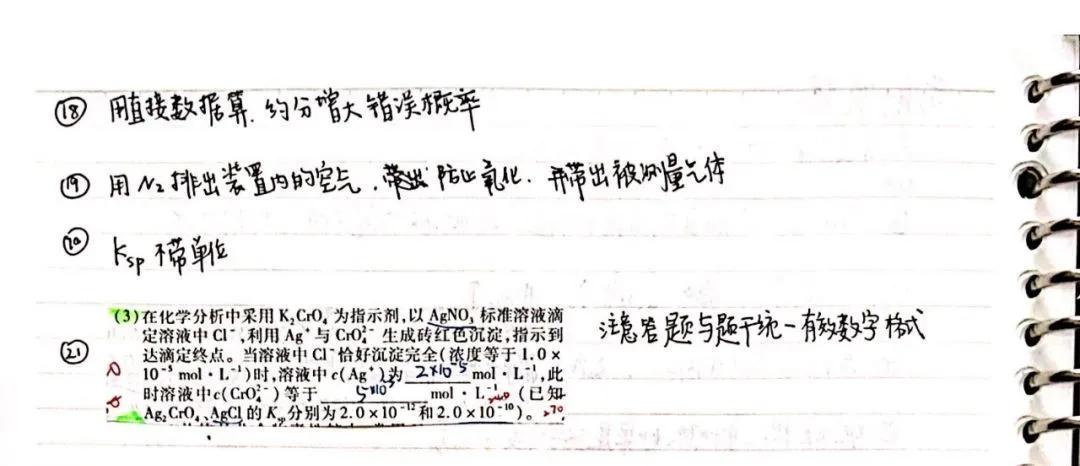 ⑱ 用直接数据算,约分增大错误概率
⑲ 用N₂排出装置内的空气,防止氧化,并带出被测量气体
⑳ Ksp不带单位
㉑
(3)在化学分析中采用K₂CrO₄为指示剂,以AgNO₃标准溶液滴
定溶液中Cl⁻,利用Ag⁺与CrO₄²⁻生成砖红色沉淀,指示到
达滴定终点。当溶液中Cl⁻恰好沉淀完全(浓度等于1.0×
10⁻⁵ mol·L⁻¹)时,溶液中c(Ag⁺)为 2×10⁻⁵ mol·L⁻¹,此
时溶液中c(CrO₄²⁻)等于 5×10⁻³ mol·L⁻¹(已知
Ag₂CrO₄、AgCl的Ksp分别为2.0×10⁻¹²和2.0×10⁻¹⁰)。
注意答题与题干统一有效数字格式